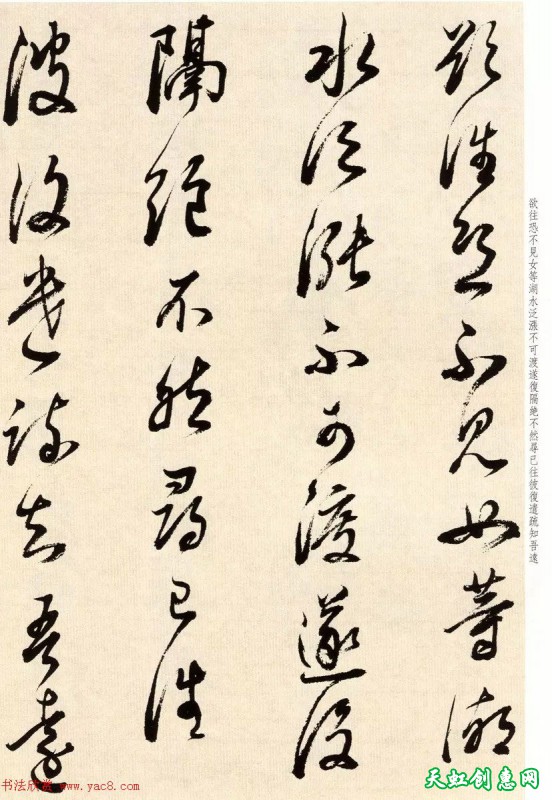 欲往恐不見女等湖水泛漲不可渡遂復隔絶不然尋已往彼復遣疏知吾遠
欲往恐不見女等湖
水泛漲不可渡遂復
隔絶不然尋已往
彼復遣疏知吾遠
书法欣赏 www.yac8.com
天虹创意网